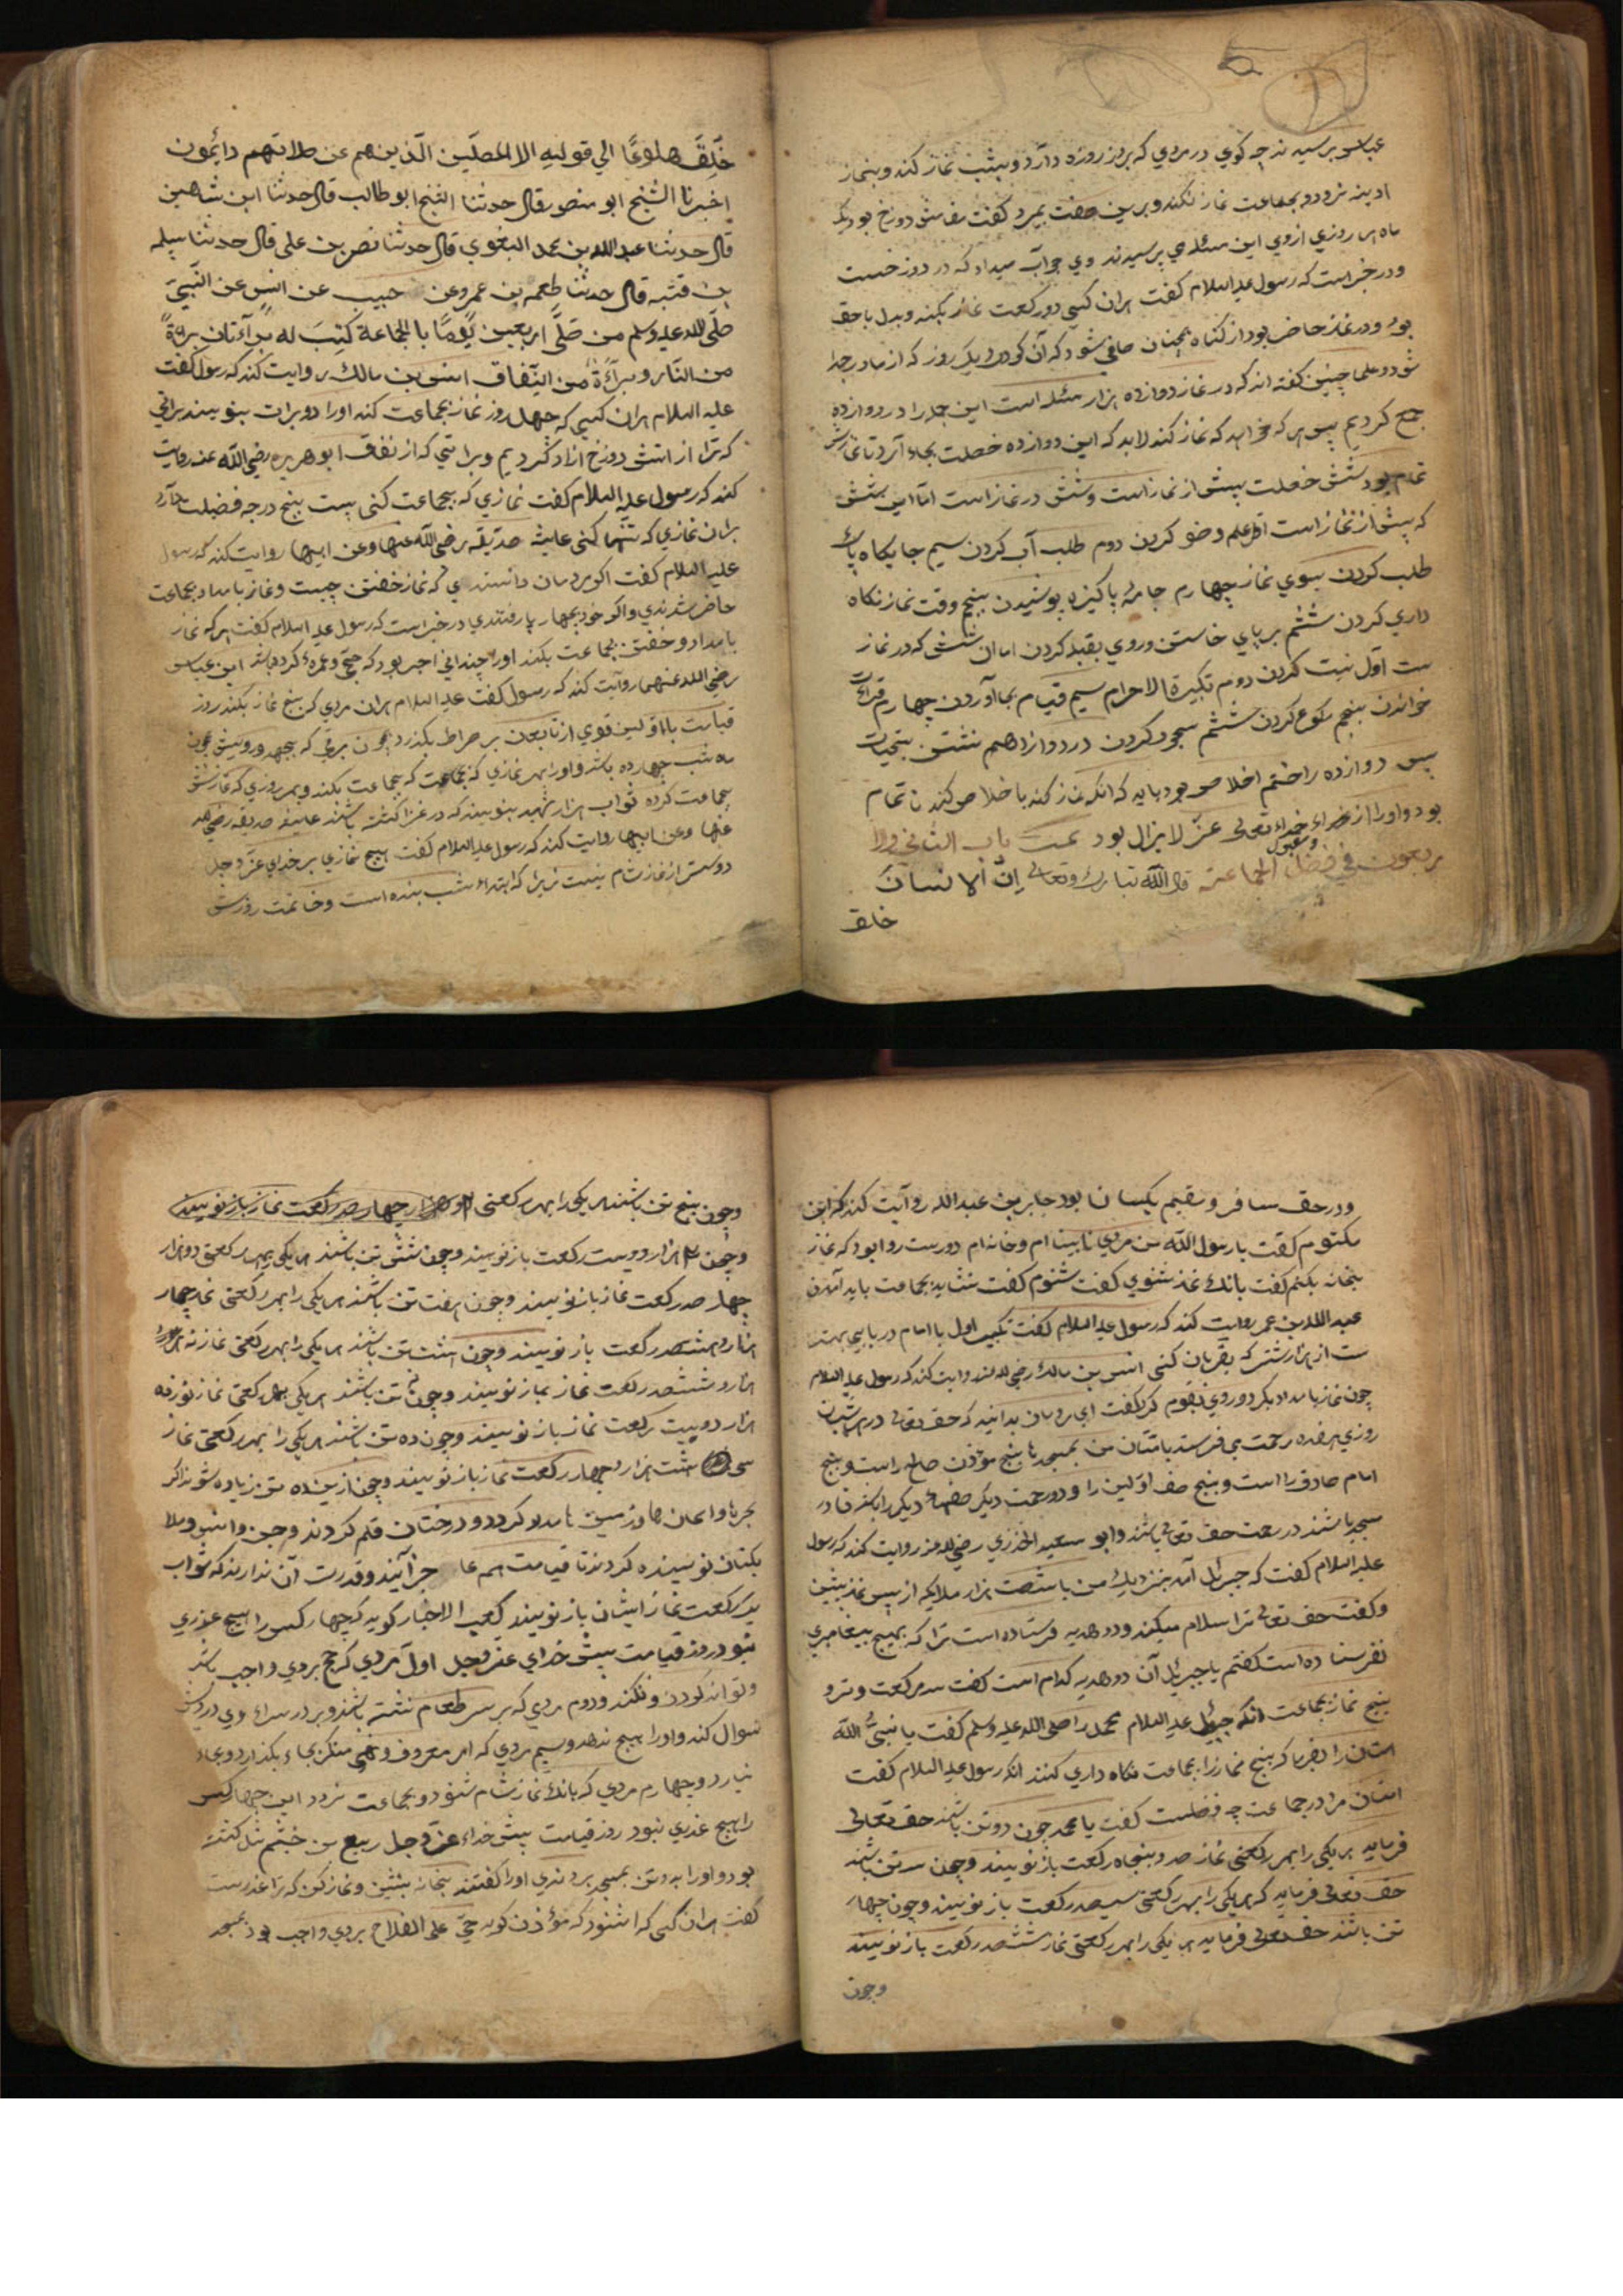 عباس پرسیدند چه کوی در مردی که بروز روزه دارد و بشب نماز کند و بنماز
ادینه نرود و بجماعت نماز نکند و برین صفت بمیرد کفت مقامش دوزخ بود یک
ماه هر روزی ازوی این مسئله می پرسیدند وی جواب میداد که در دوزخست
و در خبر است که رسول علیه السلام کفت هران کسی دو رکعت نماز بکند و بدل با حق
بود و در نماز حاضر بود از کناه همچنان صافی شود که آن کودک یک روز که از مادر جدا
شود و علما چنین کفته اند که در نماز دوازده هزار مسئله است این جمله را در دوازده
جمع کردیم پس هر که خواهد که نماز کند لابد که این دوازده خصلت بجاء آرد تا نمازش
تمام بود شش خصلت پیش از نماز است و شش در نماز است اما این شش
که پیش از نماز است اول علم وضو کردن دوم طلب آب کردن سیم جایکاه پاک
طلب کردن سوی نماز چهارم جامهٔ پاکیزه پوشیدن پنجم وقت نماز نکاه
داری کردن ششم بر پای خاستن و روی بقبله کردن اما ان شش که در نماز
ست اول نیت کردن دوم تکبیرة الاحرام سیم قیام بجا آوردن چهارم قرائت
خواندن پنجم رکوع کردن ششم سجود کردن در دوازدهم نشستن بتحیات
پس دوازده را ختم اخلاص بود باید که انکه نماز کند باخلاص کند تا تمام
بود و اورا از خداء تعالی عز لایزال بود تمت باب الثانی والا
و مقبول
ربعون فی فضل الجماعة قال الله تبارک و تعالی ان الانسان
خلق
خُلِقَ هلوعًا الی قولیه الا المصلّین الّذین هم عن صلاتهم دائمون
اخبرنا الشیخ ابو منصور قال حدثنا الشیخ ابو طالب قال حدثنا ابن شاهین
قال حدثنا عبد الله بن محمد البغوی قال حدثنا نصر بن علی قال حدثنا سلمه
بن قتبه قال حدثنا طعمه بن عمرو عن حبیب عن انس عن النّبیّ
صلّی الله علیه وسلم من صَلّی اربعین یومًا بالجماعة کتِبَ له براءتان براةً
من النّار و براءةً من النّفاق انس بن مالک روایت کند که رسول کفت
علیه السلام هران کسی که چهل روز نماز بجماعت کند اورا دو برات بنویسند براتی
که ترا از اتش دوزخ ازاد کردیم و براتی که از نفاق ابو هریره رضی الله عنه روایت
کند که رسول علیه السلام کفت نمازی که بجماعت کنی بیست پنج درجه فضیلت دارد
بران نمازی که تنها کنی عایشه صدّیقه رضی الله عنها و عن ابیها روایت کند که رسول
علیه السلام کفت اکر مردمان دانستندی که نماز خفتن چیست و نماز بامداد بجماعت
حاضر شدندی و اکر خود بچهار پا رفتندی در خبر است که رسول علیه السلام کفت هر که نماز
بامداد و خفتن بجماعت بکند اورا چندانی اجر بود که حجّ و عمرهٔ کرده باشد ابن عباس
رضی الله عنهما روایت کند که رسول کفت علیه السلام هران مردی که پنج نماز بکند روز
قیامت با اولین قومی از تابعین بر صراط بکذرد چون برقی که بجهد و رویش چون
مه شب چهارده باشد و اورا بهر نمازی که بجماعت که بجماعت بکند و بهر روزی که نمازش
بجماعت کرده ثواب هزار شهید بنویسند که در غزا کشته باشند عایشه صدیقه رضی الله
عنها و عن ابیها روایت کند که رسول علیه السلام کفت هیچ نمازی بر خدای عز و جل
دوستر از نماز شام نیست زیرا که ابتداء شب بنده است و خاتمت روزش
و در حق مسافر و مقیم یکسان بود جابر بن عبد الله روایت کند که ابن
مکتوم کفت یا رسول الله من مردی نابینا ام و خانه ام دورست روا بود که نماز
بخانه بکنم کفت بانک نماز شنوی کفت شنوم کفت نشاید بجماعت باید آمدن
عبد الله بن عمر روایت کند که رسول علیه السلام کفت تکبیر اول با امام دریابی بهتر
ست از هزار شتر که بقربان کنی انس بن مالک رضی الله عنه روایت کند که رسول علیه السلام
چون نماز بامداد بکرد و روی بقوم کرد کفت ای مردمان بدانید که حق تعالی در هر شبان
روزی هفده رحمت می فرستد بامتان من بمسجدها پنج موذن صالح راست و پنج
امام صادق را است و پنج صف اوّلین را و دو رحمت دیکر صفهاء دیکر را بکفر قادر
مسجد باشند در رحمت حق تعالی باشند و ابو سعید الخذری رضی الله عنه روایت کند که رسول
علیه السلام کفت که جبرئل آمد بنزدیک من با شصت هزار ملایکه از پس نماز پیشین
و کفت حق تعالی ترا سلام میکند و دو هدیه فرستاده است ترا که بهیچ پیغامبری
نفرستاده است کفتم یا جبرئل آن دو هدیه کدام است کفت سه رکعت وتر و
پنج نماز بجماعت انکه جبرئیل علیه السلام محمد را صلی الله علیه وسلم کفت یا نبیّ الله
امتان را بفرما که پنج نماز را بجماعت نکاه داری کنند انکه رسول علیه السلام کفت
امتان مرا در جماعت چه فضلست کفت یا محمد چون دو تن باشند حق تعالی
فرماید هر یکی را بهر رکعتی نماز صد و پنجاه رکعت باز نویسند و چون سه تن باشند
حق تعالی فرماید که هر یکی را بهر رکعتی سیصد رکعت باز نویسند و چون چهار
تن باشند حق تعالی فرماید هر یکی را بهر رکعتی نماز ششصد رکعت باز نویسند
وچون
وچون پنج تن باشند هر یکی را بهر رکعتی هزار چهار صد رکعت نماز باز نویسند
و چون هزار دویست رکعت باز نویسند و چون شش تن باشند هر یکی بهر رکعتی دو هزار
چهار صد رکعت نماز باز نویسند و چون هفت تن باشند هر یکی را بهر رکعتی نماز چهار
هزار و هشتصد رکعت باز نویسند و چون هشت تن باشند هر یکی را بهر رکعتی نماز نه
هزار و ششصد رکعت نماز باز نویسند و چون تن باشند هر یکی بهر رکعتی نماز نوزده
هزار دویست رکعت نماز باز نویسند و چون ده تن باشند هر یکی را بهر رکعتی نماز
سی هشت هزار و چهار رکعت نماز باز نویسند و چون ازین ده تن زیاده شوند اکر
بحرها و اسمان ها و زمین ها مداد کردد و درختان قلم کردند و جن و انس و ملا
یکتان نویسنده کردند تا قیامت همه عاجز آیند و قدرت آن ندارند که ثواب
یک رکعت نماز ایشان باز نویسند کعب الاخبار کوید که چهار کس را هیچ عذری
نبود روز قیامت پیش خدای عز و جل اول مردی که حج بروی واجب باشد
و تواند کردن و نکند و دوم مردی که بر سر طعام نشسته باشد و بر در سراء وی درویش
سوال کند و اورا هیچ ندهد و سیم مردی که امر معروف و نهی منکر بجاء بکذارد و بجاء
نیارد و چهارم مردی که بانک نماز شام شنود و بجماعت نرود این چهار کس
را هیچ عذری نبود روز قیامت پیش خداء عز و جل ربیع بن خثیم شل کشته
بود و اورا بدوتن بمسجد بردندی اورا کفتند بخانه بنشین و نماز کن که ترا عذرست
کفت هران کسی که اشنود که مؤذن کوید حیّ علی الفلاح بروی واجب بود بمسجد